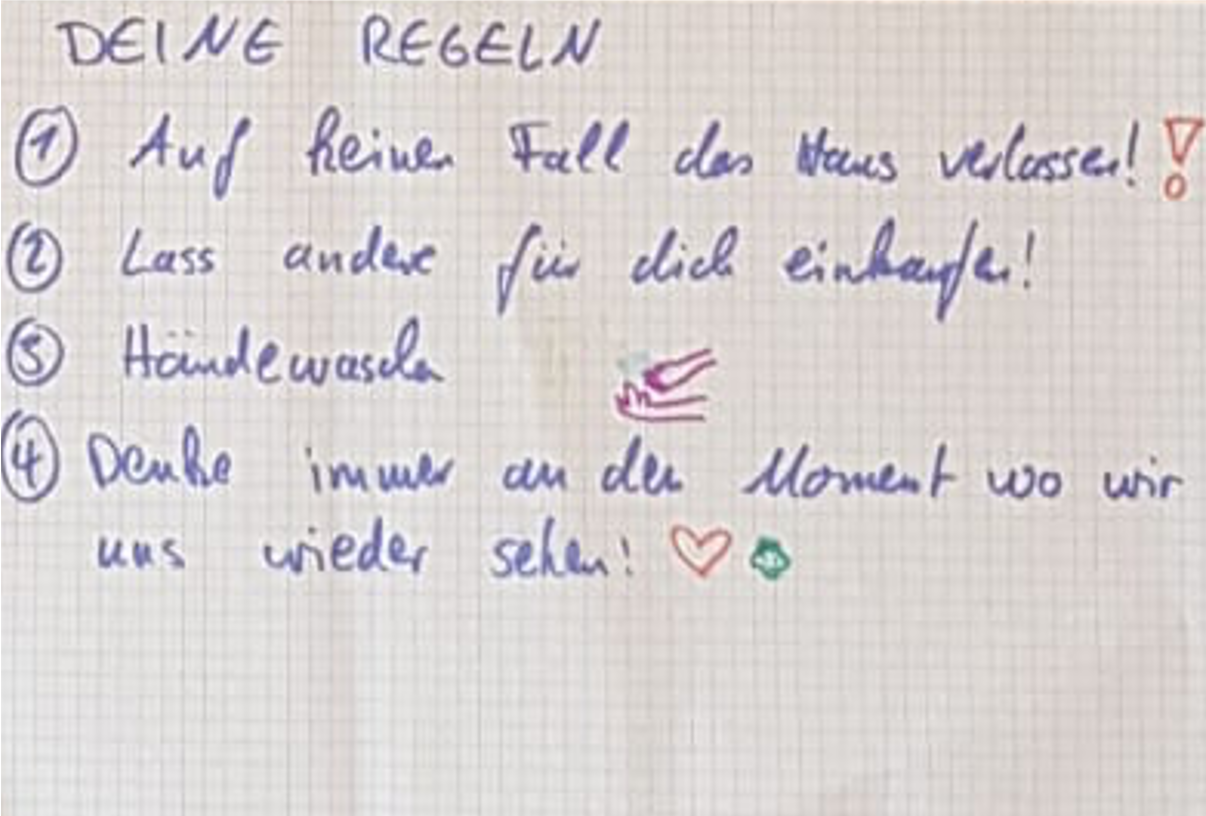 DEINE REGELN
① Auf keinen Fall das Haus verlassen! !
② Lass andere für dich einkaufen!
③ Händewaschen
④ Denke immer an den Moment wo wir
uns wieder sehen! ♡